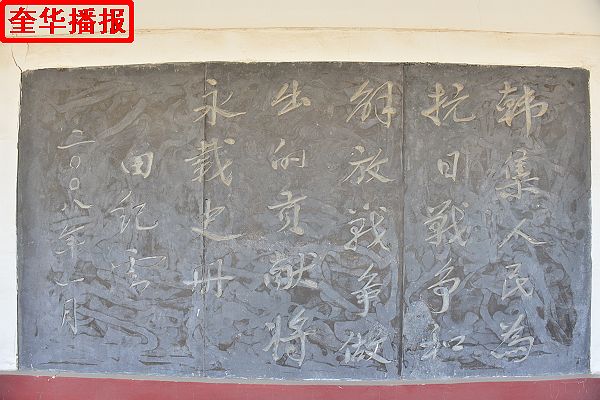 奎华播报
韩集人民为
抗日战争和
解放战争做
出的贡献将
永载史册
田纪云
二〇〇八年一月